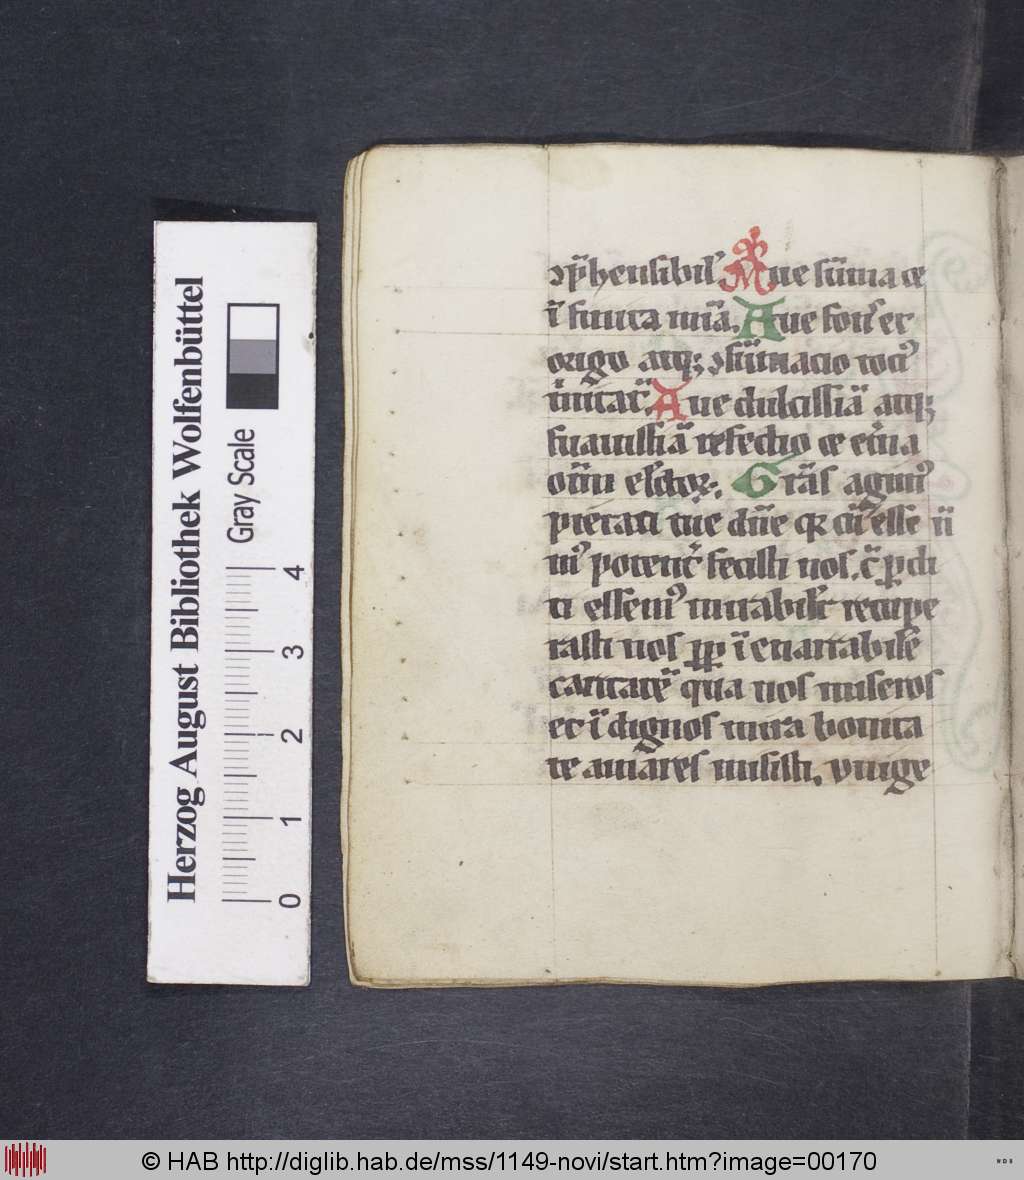 ꝯp̄hensibil᷒. Aue sūma ⁊
ī finita mīa. Aue fons et
origo atqꝫ ꝯsūmacio toci᷒
Aue dulcissīa atqꝫ
suauissīa refectio ⁊ et̾na
oīm electoꝝ. Grās agim᷒
pietati tue dn̄e cū esse
potent̾ fecisti nos.
ti essem᷒ mirabilit̾ recupe
rasti nos ꝓpt̾ ī enarrabilē
caritatē qua nos miseros
et ī dignos mira bonita
te amares misisti. vnige
Herzog August Bibliothek Wolfenbüttel
Gray Scale
0 1 2 3 4
© HAB http://diglib.hab.de/mss/1149-novi/start.htm?image=00170